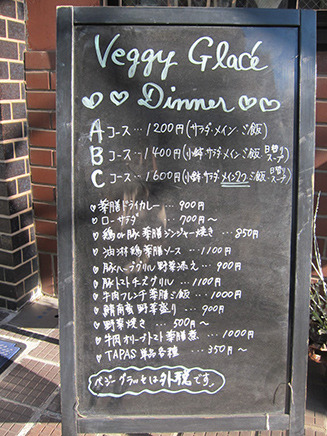 Veggy Gladé
♡♡ Dinner ♡♡
A コース…1200円(サラダ・メイン・ご飯)
B コース…1400円(小鉢・サラダ・メイン・ご飯・日替りスープ)
C コース…1600円(小鉢・サラダ・メイン2・ご飯・日替りスープ)
♡薬膳ドライカレー…900円
♡ローサラダ …700円〜
♡鶏or豚薬膳ジンジャー焼き…850円
♡油淋鶏薬膳ソース…1100円
♡豚ハーブグリル野菜添え…900円
♡豚トマトチーズグリル…1100円
♡牛肉フレンチ薬膳ご飯…1000円
♡野菜盛り…900円
♡野菜焼き…500円〜
♡牛肉オリーブトマト薬膳煮…1000円
♡TAPAS 単品各種…350円〜
は外税です。